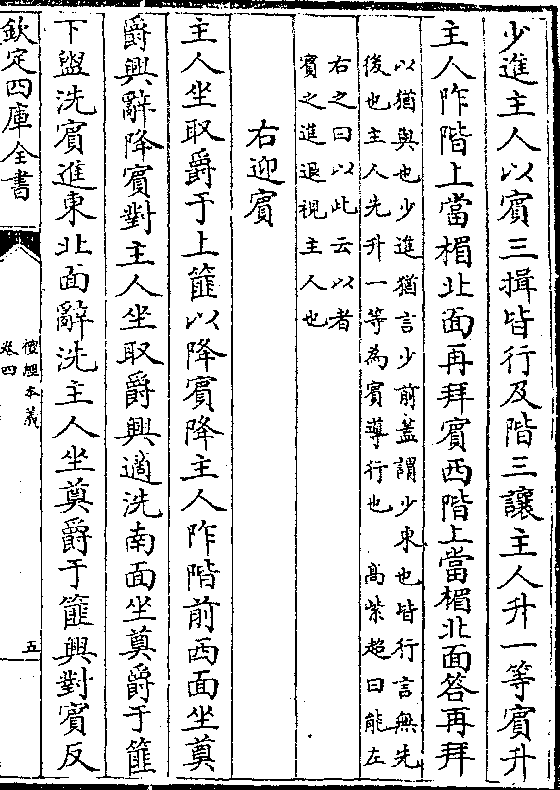 少進主人以賓三揖皆行及階三讓主人升一等賓升
主人阼階上當楣北面再拜賓西階上當楣北面答再拜
以猶與也少進猶言少前蓋謂少東也皆行言無先
後也主人先升一等為賓導行也　高紫超曰能左
右之曰以此云以者
賓之進退視主人也
右迎賓
主人坐取爵于上篚以降賓降主人阼階前西面坐奠
爵興辭降賓對主人坐取爵興適洗南面坐奠爵于篚
下盥洗賓進東北面辭洗主人坐奠爵于篚興對賓反
欽定四庫全書
禮經本義
卷四
五